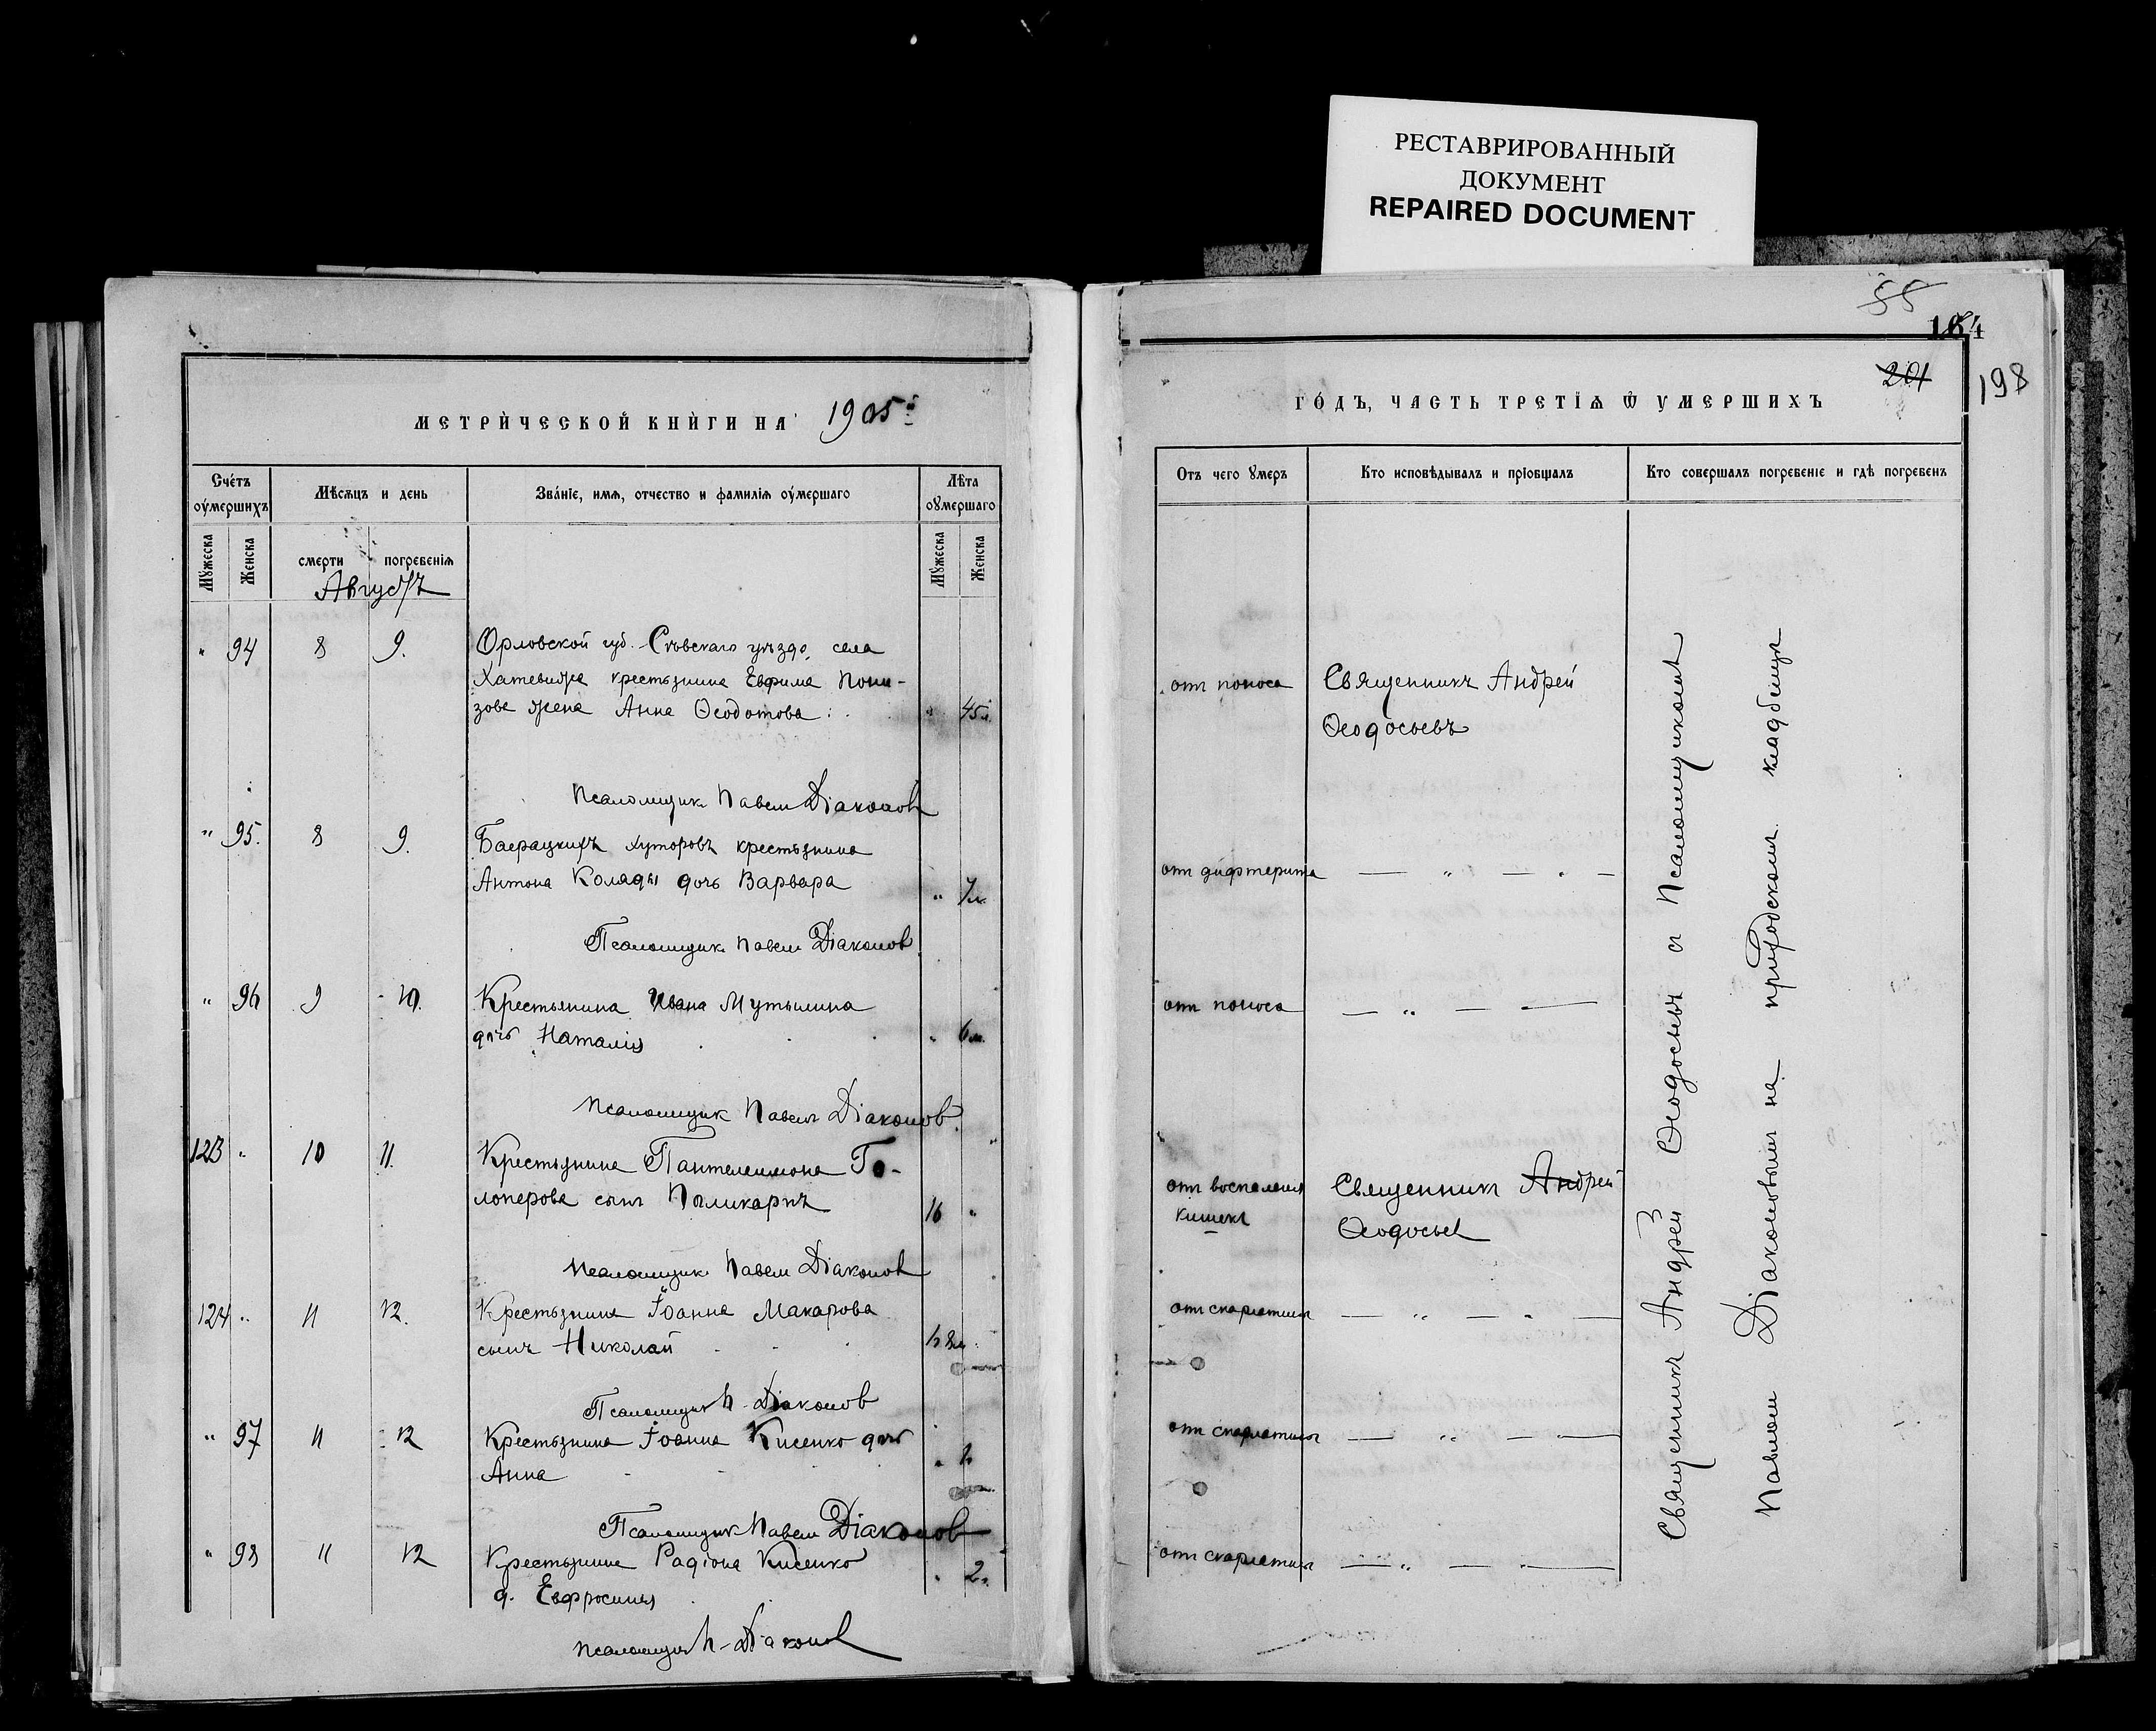 РЕСТАВРИРОВАННЫЙ
ДОКУМЕНТ
REPAIRED DOCUMENT
55
184
201
198
МЕТРИ́ЧЕСКОЙ КНИ́ГИ НА 1905й
Сче́тъ оу́мершихъ
Мꙋжеска
Женска
Мѣсѧцъ и день
смерти
погребенїѧ
Зва́нїе, имѧ, отчество и фамилїѧ оу́мершаго
Лѣта оу҆мершаго
Мꙋжеска
Женска
Августъ
" 94 8 9. Орловской губ. Сѣвскаго уѣзда, села
крестьянина Евфима Пони-
зова жена Анна Ѳеодотова " 45 л.
Псаломщикъ Павелъ Діаконов
" 95. 8 9. Баерацкихъ хуторовъ крестьянина
Антона Коляды дочь Варвара " 7 м.
Псаломщикъ Павелъ Діаконов
" 96 9 10. Крестьянина Ивана Мутылина
дочь Наталія " 6 м.
Псаломщик Павелъ Діаконов.
123 " 10 11. Крестьянина Пантелеимона Го-
лоперова сынъ Поликарпъ 16 "
Псаломщик Павелъ Діаконов
124 " 11 12. Крестьянина Іоанна Макарова
сынъ Николай
Псаломщик П. Діаконов
" 97 11 12 Крестьянина Іоанна Кисенко дочь
Анна
Псаломщик Павелъ Діаконов
" 98 11 12 Крестьянина Радіона Кисенко
д. Евфросинія " 2
псаломщик П. Діаконов
ГО́ДЪ, ЧАСТЬ ТРЕТЇѦ Ѡ҆ УМЕРШИХЪ
Отъ чего ᲂумеръ
Кто исповѣдывалъ и прїобщалъ
Кто совершалъ погребенїе и гдѣ погребенъ
от поноса Священникъ Андрей
Ѳеодосьевъ
от дифтерита — " — " —
от поноса — " — —
от воспаления Священник Андрей
кишекъ Ѳеодосьев
от скарлатины — " — " —
от скарлатины — " — " —
от скарлатины — " — " —
Священник Андрей Ѳеодосьев с Псаломщиком
Павлом Діаконовым на приходском кладбище